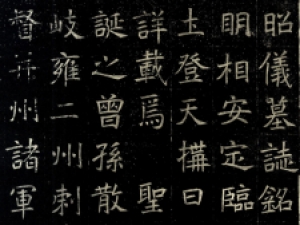 昭儀墓誌銘
明相安定臨
圡登天搆日
詳載焉 聖
誕之曾孫散
岐雍二州刺
督并州諸軍